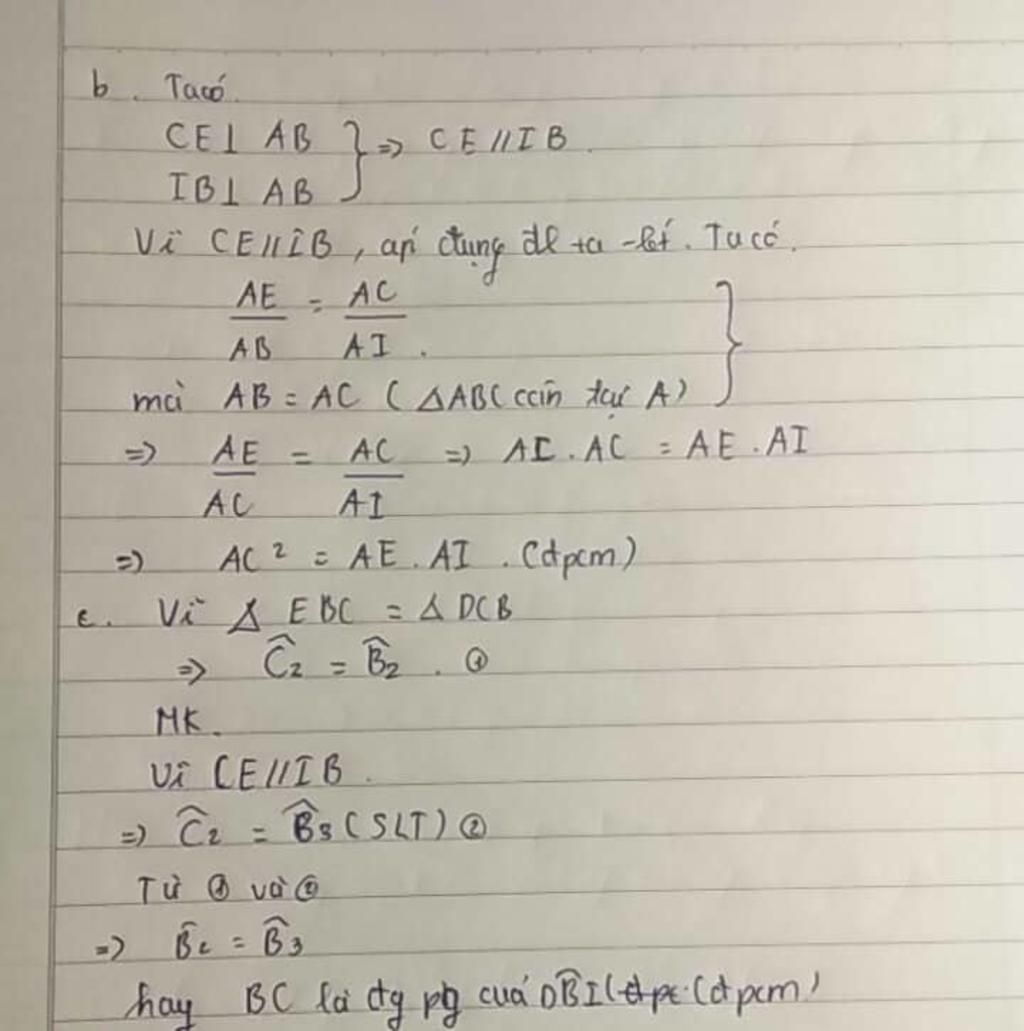 b. Ta có.
CE⊥ AB
IB⊥ AB } => CE//IB.
Vì CE//IB, áp dụng đl ta-lét. Ta có.
AE/AB = AC/AI.
mà AB = AC (ΔABC cân tại A) }
=> AE/AC = AC/AI => AC.AC = AE.AI
=> AC² = AE.AI. (đpcm)
c. Vì Δ EBC = Δ DCB
=> Ĉ₂ = B̂₂. ①
MK.
Vì CE//IB.
=> Ĉ₂ = B̂₃ (SLT) ②
Từ ① và ②
=> B̂₂ = B̂₃
hay BC là đg pg của DB̂I (đpcm)